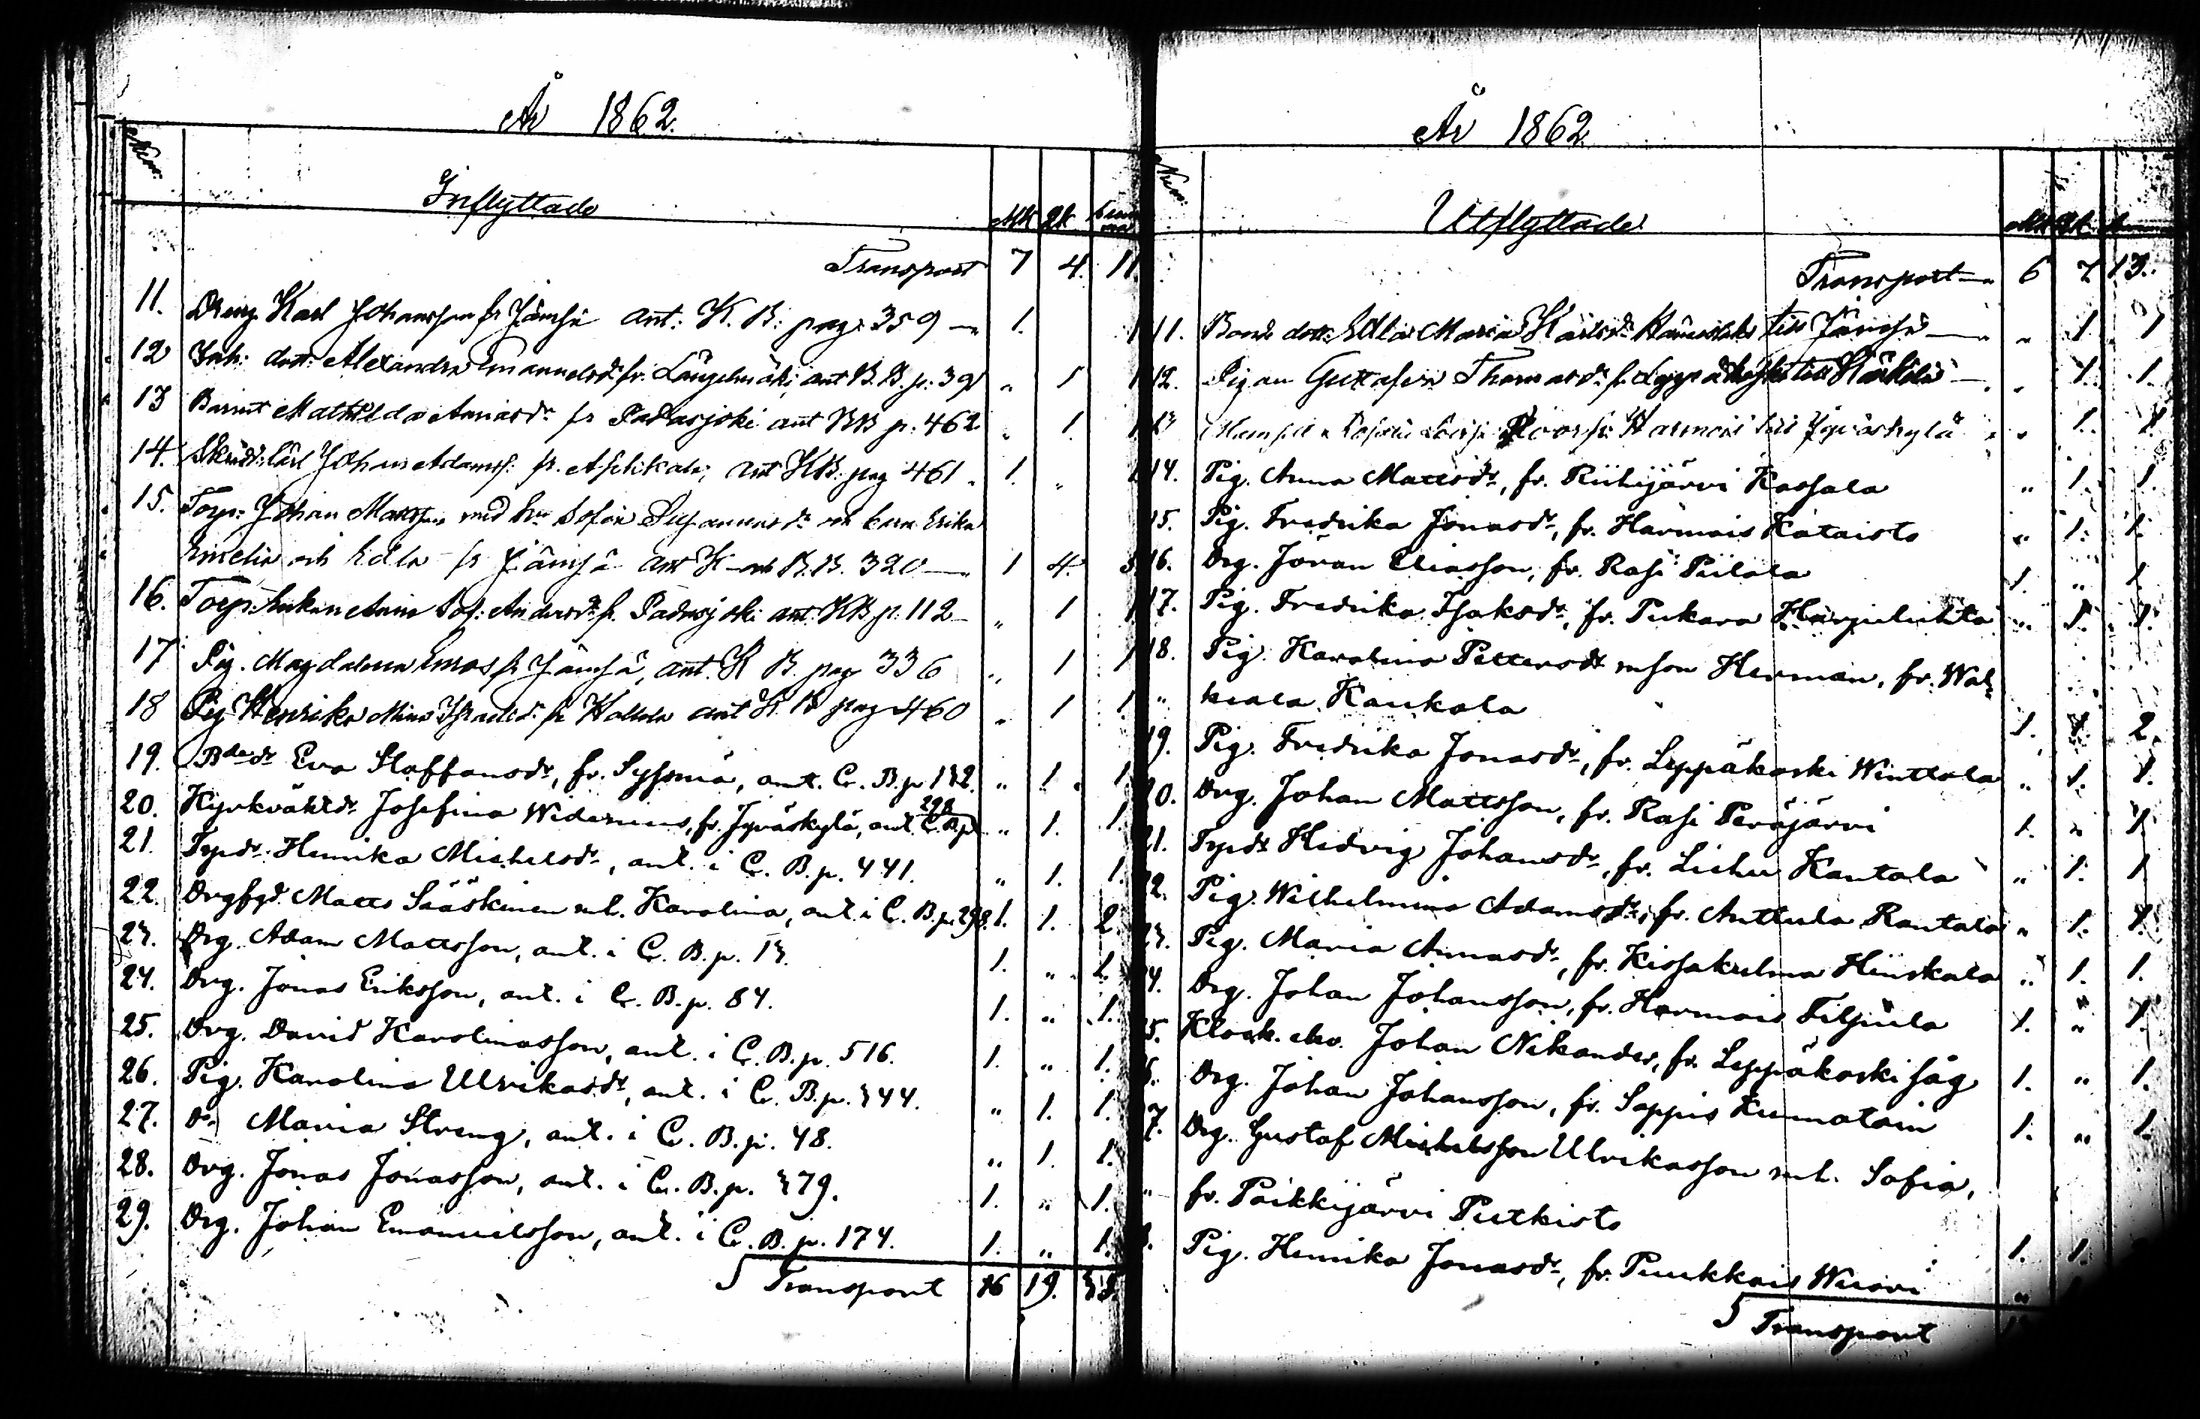 År 1862.
Num:
Inflyttade
Mk Qk Summa
Transport 7 4. 11.
11. Dreng Karl Johansson fr Jämsä ant: K. B: pag: 359 — 1. 1
12 Inh: dott: Alexandra Emanuelsdr fr. Längelmäki, ant K. B. p: 39 „ 1
13 Barnet Mathilda Annasdr fr Padasjoki ant KB p: 462 „ 1.
14. Skrädd: lärl Johan Adamss: fr. Asikkala, ant KB: pag 461. 1. „
15. Torp: Johan Mattsson med hu Sofia Susannasdr och barn Erika
Emelia och Edla fr Jämsä ant K B. 320 — 1 4. 5
16. Torp: Enkan Anna Sof: Andersdr fr. Padasjoki ant: KB p: 112 — „ 1
17 Pig. Magdalena Enos fr Jämsä, ant. K B. pag 336 „ 1 1
18 Pig Henrika Mina Israelsdr fr Hollola ant K B pag 460 „ 1 1.
19. Bdedr Eva Staffansdr, fr. Syssmä, ant. C. B. p 132. „ 1. 1.
20. Kyrkväktdr Josefina Widenius, fr. Jyväskylä, ant. C. B. p 298 „ 1. 1.
21. Tpdr Henrika Michelsdr, ant. i C. B. p. 441. „ 1. 1.
22. Drgfgd. Matts Sääskinen ml. Karolina, ant. i C. B. p. 298. 1. 1. 2.
23. Drg. Adam Mattsson, ant. i C. B. p. 13. 1. „ 1.
24. Drg. Jonas Eriksson, ant. i C. B. p. 84. 1. „ 1.
25. Drg. David Karolinasson, ant. i C. B. p. 516. 1. „ 1.
26. Pig. Karolina Ulrikasdr, ant. i C. B. p. 344. „ 1. 1.
27. Do Maria Streng, ant. i C. B. p. 48. „ 1. 1.
28. Drg. Jonas Jonasson, ant. i C. B. p. 379. 1. „ 1.
29. Drg. Johan Emanuelsson, ant. i C. B. p. 174. 1. „ 1.
Transport 16 19. 35.
År 1862
Num:
Utflyttade
Mk Qk
Transport — 6 7 13.
11. Bond dott: Edla Maria Karlsdr till Jämsä — „ 1 1
12. Pigan Gustafva Thomasdr fr Leppäkoski till — „ 1. 1.
13 Mamsell Rosalie Lovisa Roos fr: Harmois till Jyväskylä „ 1. 1.
14. Pig. Anna Mattsdr, fr. Riihijärvi Kassala „ 1. 1.
15. Pig. Fredrika Jonasdr, fr. Harmois Kataisto „ 1. 1.
16. Drg. Jöran Eliasson, fr. Rasi Piilola 1. „ 1
17. Pig. Fredrika Isaksdr, fr. Pukara Harjulahto „ 1. 1.
18. Pig. Karolina Pettersdr m son Herman, fr. Wal-
„ keala Kaukola 1. 1. 2.
19. Pig. Fredrika Jonasdr, fr. Leppäkoski Winttola „ 1. 1.
20. Drg. Johan Mattsson, fr. Rasi Peräjärvi 1. „ 1
21. Tpdr Hedvig Johansdr, fr. Liehu Kantala „ 1. 1
22. Pig. Wilhelmina Adamsdr, fr. Anttula Rantala „ 1. 1.
23. Pig. Maria Annasdr, fr. Kissakulma Hinskala „ 1. 1.
24. Drg. Johan Johansson, fr. Harmois Filpula 1. „ 1.
25. Klock. elev. Johan Nikander, fr. Leppäkoski såg 1. „ 1.
26. Drg. Johan Johansson, fr. Seppis Kumoloin 1. „ 1.
27. Drg. Gustaf Michelsson Ulrikasson ml. Sofia,
„ fr. Poikkijärvi Putkisto 1. 1.
Pig. Henrika Jonasdr, fr. Puukkois Wuori „
Transport